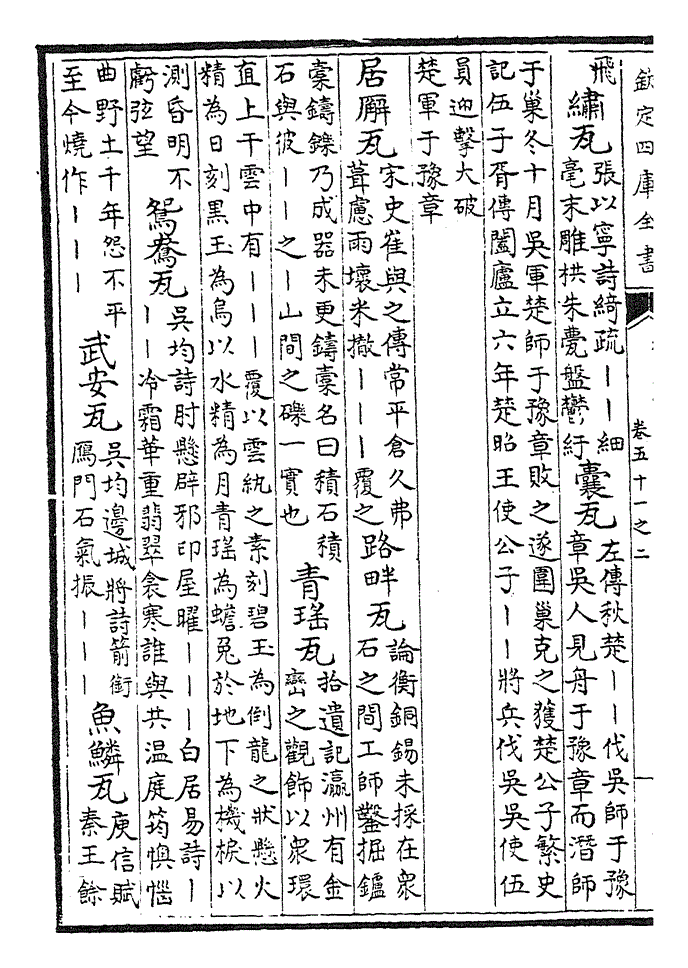 欽定四庫全書
卷五十一之二
飛
繡瓦
張以寧詩綺疏——細
毫末雕栱朱甍盤鬱紆
囊瓦
左傳秋楚——伐吳師于豫
章吳人見舟于豫章而潛師
于巢冬十月吳軍楚師于豫章敗之遂圍巢克之獲楚公子繁史
記伍子胥傳闔廬立六年楚昭王使公子——將兵伐吳吳使伍
員迎擊大破
楚軍于豫章
居廨瓦
宋史崔與之傳常平倉久弗
葺慮雨壞米撤———覆之
路畔瓦
論衡銅錫未採在衆
石之間工師鑿掘鑪
橐鑄鑠乃成器未更鑄橐名曰積石積
石與彼——之—山間之礫一實也
青瑤瓦
拾遺記瀛州有金
巒之觀飾以衆環
直上干雲中有———覆以雲紈之素刻碧玉為倒龍之狀懸火
精為日刻黑玉為烏以水精為月青瑤為蟾兔於地下為機棙以
測昏明不
虧弦望
鴛鴦瓦
吳均詩肘懸辟邪印屋曜———白居易詩—
——冷霜華重翡翠衾寒誰與共温庭筠懊惱
曲野土千年怨不平
至今燒作———
武安瓦
吳均邊城將詩箭銜
鴈門石氣振———
魚鱗瓦
庾信賦
秦王餘